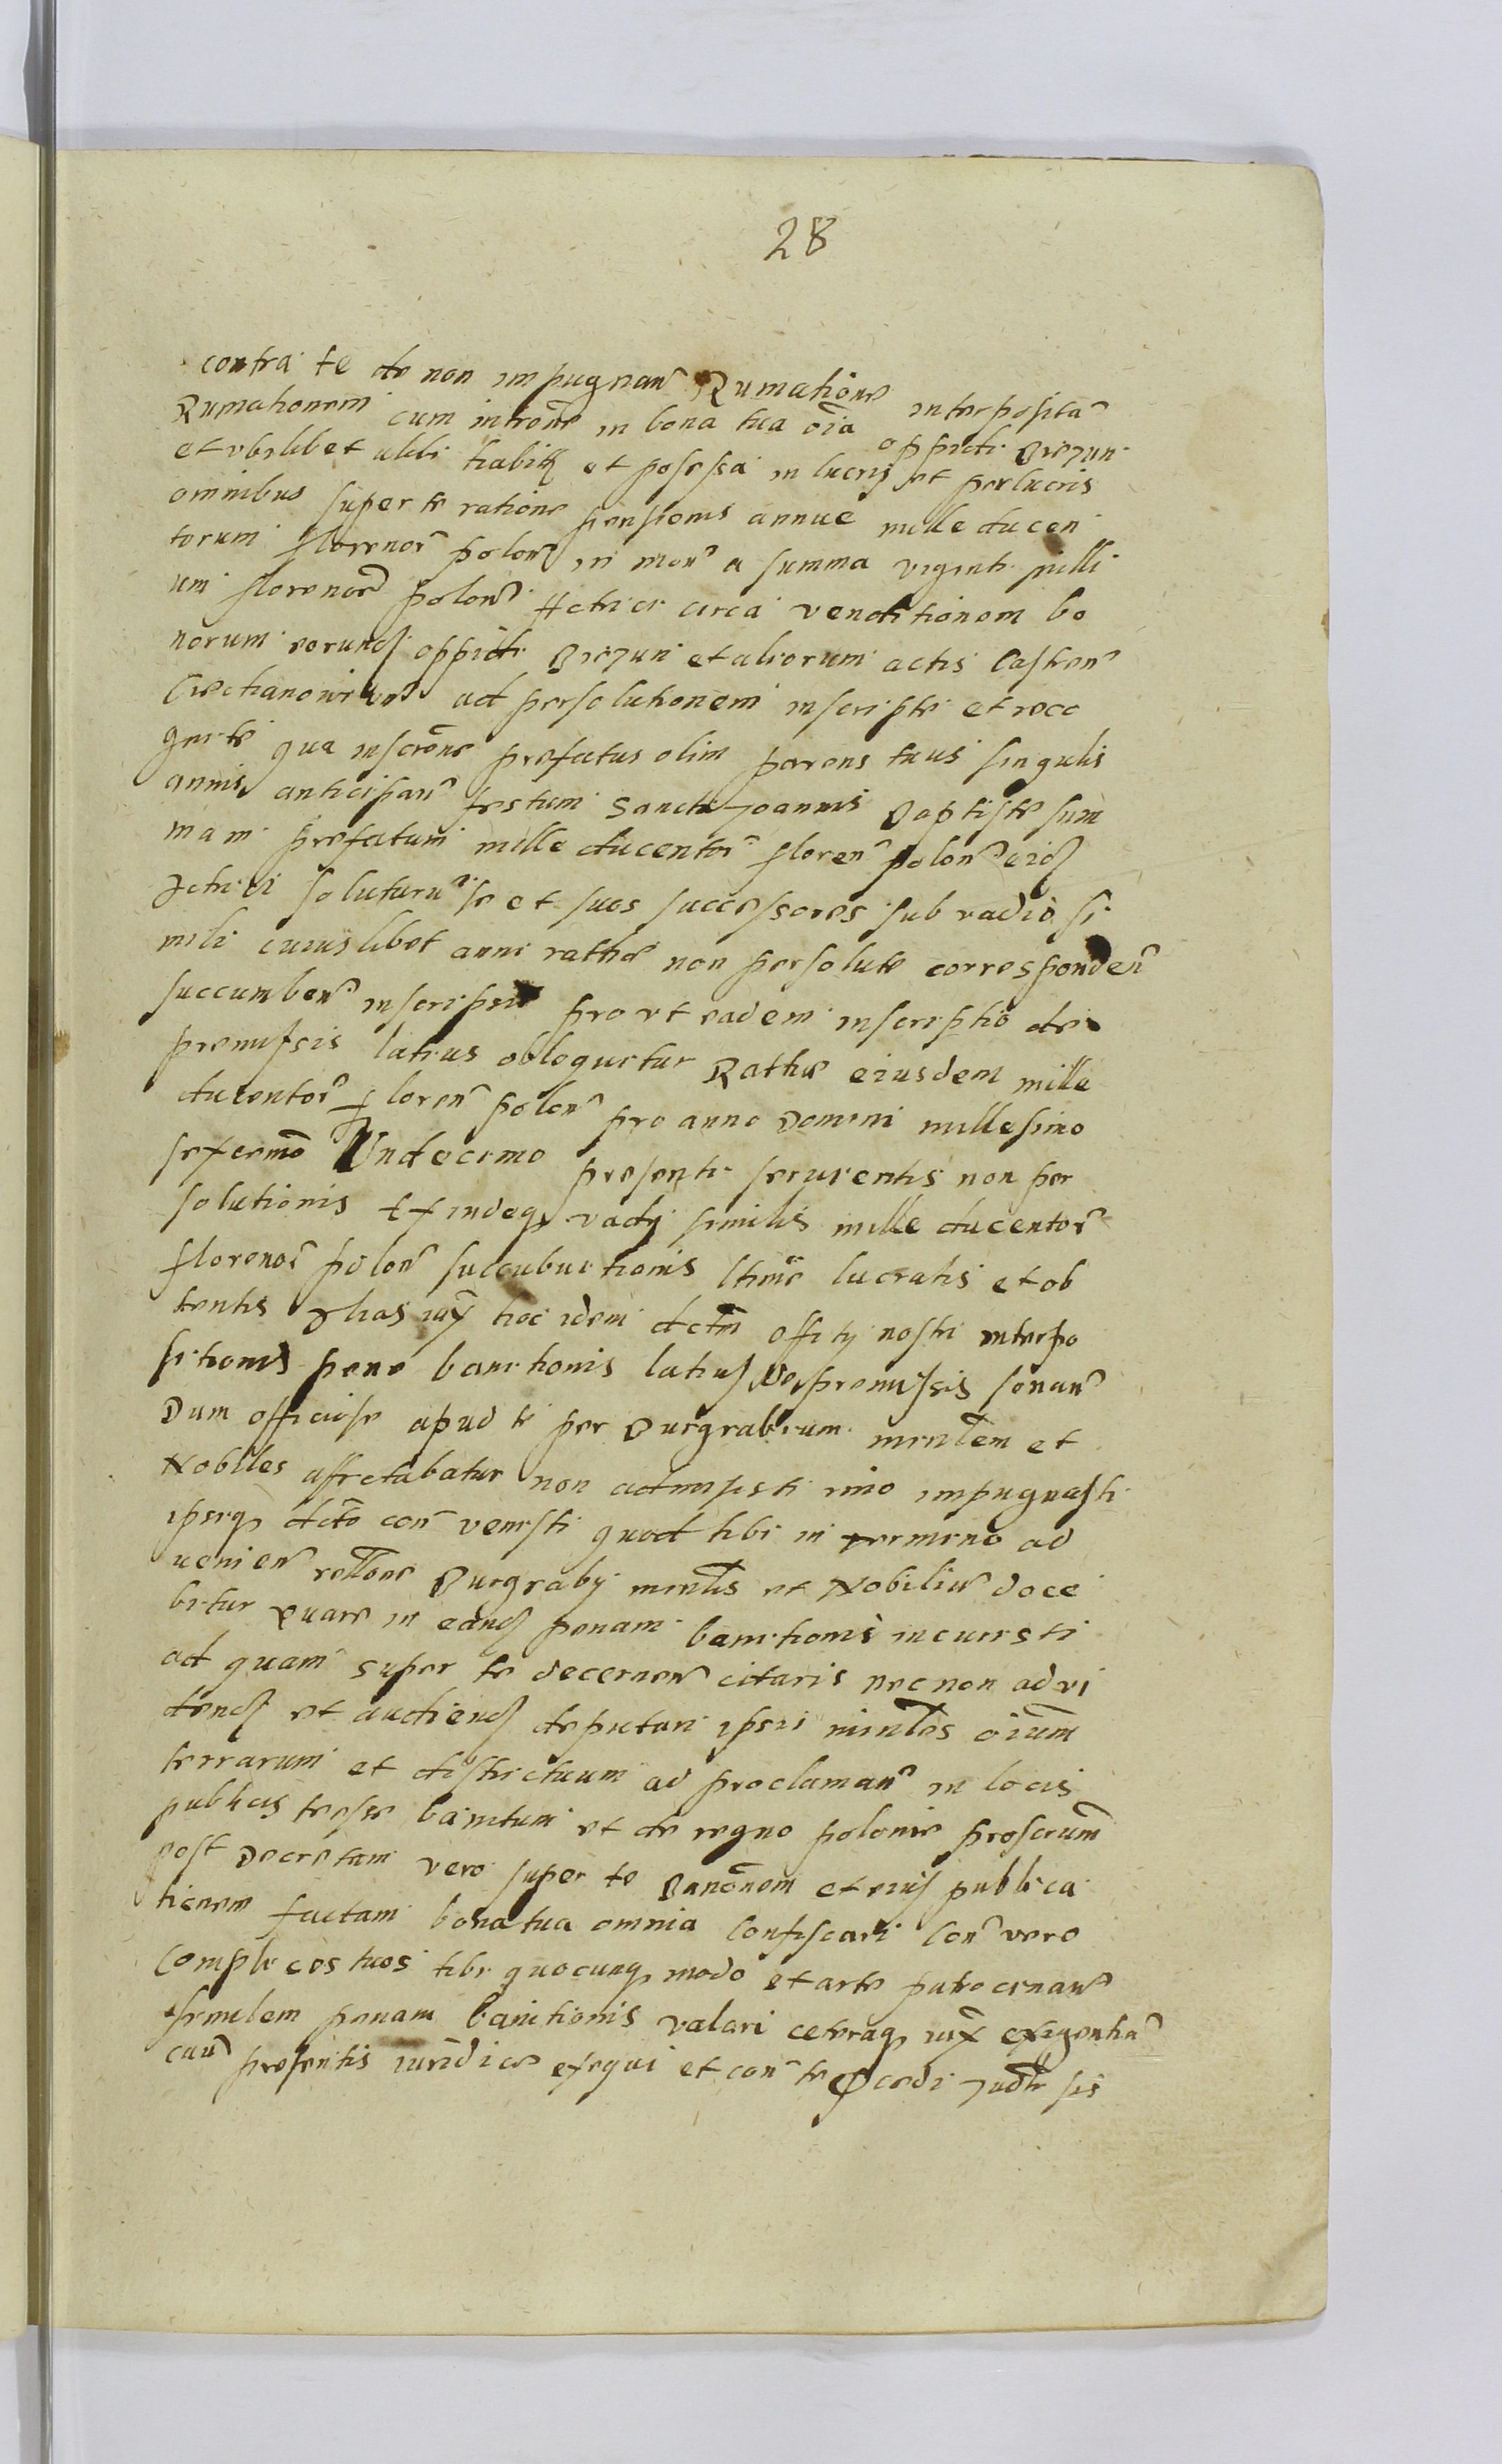 28
contra te de non impugnan Rumatione interposita
Rumationem cum introne in bona tua oia oppidi Biezun
et vbilibet alibi habita et possessa in lucris et perlucris
omnibus super te ratione pensionis annue mille ducen
torum florenor polon in mon a summa viginti milli
um florenor polon Actrici circa venditionem bo
norum eorund oppidi Biezun et aliorum actis Castren
Ciechanowien ad persolutionem inscripte et reco
gnite qua inscrone prefatus olim parens tuus singulis
annis anticipan festum Sancti Joannis Baptiste sum
mam prefatam mille ducentor floren polon eid
Actrici soluturu se et suos successores sub vadio si
mili cuiuslibet anni rathe non persolute corresponden
succumben inscripsit prout eadem inscriptio de
premissis latius obloquitur Rathe eiusdem mille
ducentor floren polon pro anno Domini millesimo
sexcemo Undecimo presenti seruientis non per
solutionis Et indeq vadij similis mille ducentor
florenor polon succubuitionis ltime lucratis et ob
tentis hoc idem dctm offity nostri interpo
sitionis pene banitionis latius de premissis sonan
Dum officiose apud te per Burgrabium mnrlem et
Nobiles affectabatur non admisisti imo impugnasti
ipsiq dcto con venisti quod tibi in termino ad
uenien reltone Burgrabij mnrlis et Nobiliu doce
bitur Quare in eand penam banitionis incuristi
ad quam super te decernen citaris nec non ad vi
dend et audiend deputari ipsii mnrles oium
terrarum et districtuum ad proclaman in locis
publicis te esse banitum et de regno polonie proscrium
post Decretam vero super te Banonem et eius publica
tionem factam bona tua omnia confiscari Con vero
complices tuos tibi quocunq modo et arte patrocinan
similem penam banitionis valari ceteraq iux exigentia
caue presentis iuridice exequi et con te pcedi Judr sis